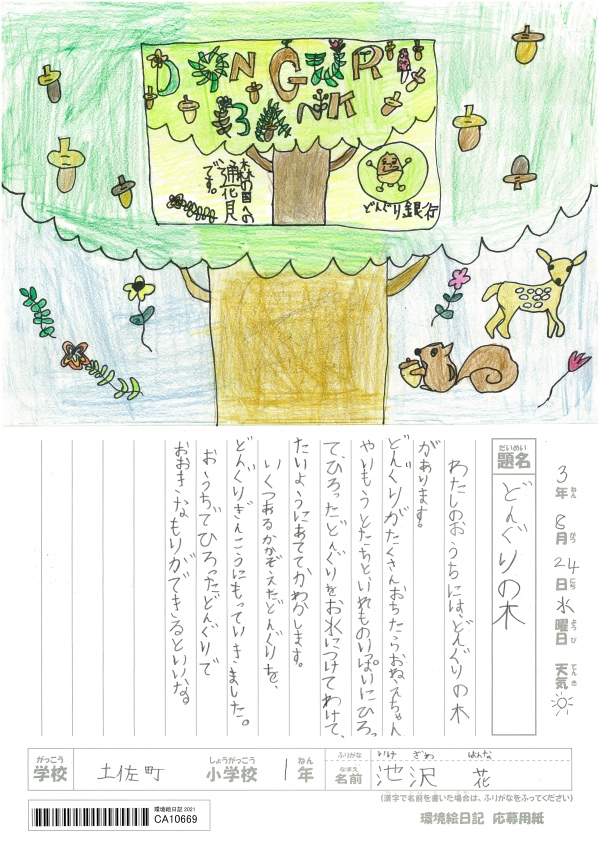 DONGURI
BANK
森の国への
通花見
です。
どんぐり銀行
3年 8月 24日 水曜日 天気
ねん がつ にち ようび てんき
だいめい
題名
どんぐりの木
わたしのおうちには、どんぐりの木
があります。
どんぐりがたくさんおちたらおねえちゃん
やいもうとたちといれものいっぱいにひろっ
て、ひろったどんぐりをお水につけてわけて、
たいようにあててかわかします。
いくつあるかかぞえたどんぐりを、
どんぐりぎんこうにもっていきました。
おうちでひろったどんぐりで
おおきなもりができるといいな。
がっこう しょうがっこう ねん ふりがな いけ ざわ はんな
学校 土佐町 小学校 1年 なまえ 名前 池沢 花
(漢字で名前を書いた場合は、ふりがなをふってください)
環境絵日記 2021
CA10669
環境絵日記 応募用紙